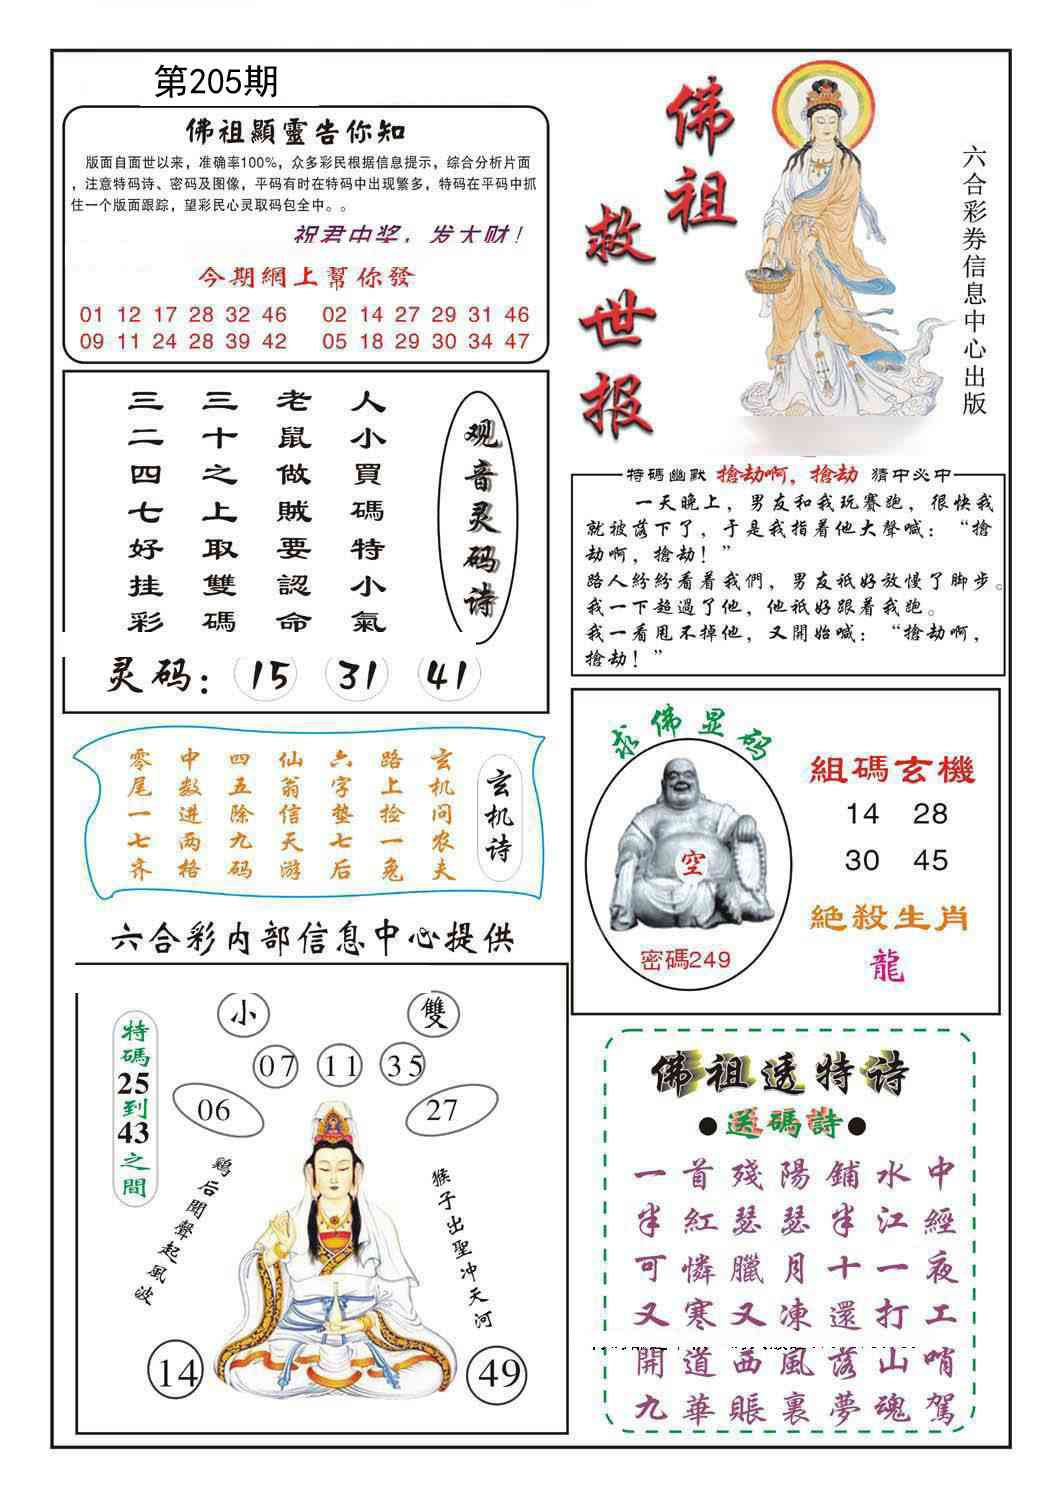 第205期
佛祖顯靈告你知
版面自面世以来，准确率100%，众多彩民根据信息提示，综合分析片面
，注意特码诗、密码及图像，平码有时在特码中出现繁多，特码在平码中抓
住一个版面跟踪，望彩民心灵取码包全中。。
祝君中奖，发大财！
今期網上幫你發
01 12 17 28 32 46 02 14 27 29 31 46
09 11 24 28 39 42 05 18 29 30 34 47
佛祖
救世报
六合彩券信息中心出版
观音灵码诗
人小買碼特小氣
老鼠做賊要認命
三十之上取雙碼
三二四七好挂彩
灵码：15 31 41
特碼幽默 搶劫啊，搶劫 猜中必中
一天晚上，男友和我玩賽跑，很快我
就被落下了，于是我指着他大聲喊：“搶
劫啊，搶劫！”
路人紛紛看着我們，男友祇好放慢了脚步。
我一下超過了他，他祇好跟着我跑。
我一看甩不掉他，又開始喊：“搶劫啊，
搶劫！”
玄机诗
玄机问农夫
路上捡一兔
六字垫七后
仙翁信天游
四五除九码
中数进两格
零尾一七齐
求佛显码
空
密碼249
組碼玄機
14 28
30 45
絕殺生肖
龍
六合彩内部信息中心提供
特碼25到43之間
小 雙
07 11 35
06 27
鷄后聞聲起風波
猴子出聖冲天河
14 49
佛祖透特诗
●送碼詩●
一首殘陽鋪水中
半紅瑟瑟半江經
可憐臘月十一夜
又寒又凍還打工
開道西風落山哨
九華賬裏夢魂駕